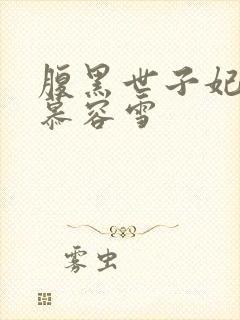 腹黑世子妃
慕容雪
雾虫